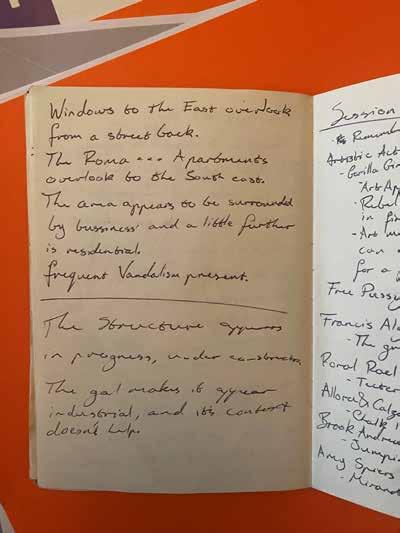 Windows to the East overlook
from a street back.
The Roma --- Apartments
overlook to the South east.
The area appears to be surrounded
by bussiness and a little further
is residential.
frequent Vandalism present.
The Structure appears
in progress, under construction.
The gal makes it appear
industrial, and it's context
doesn't help.
Session
Rememb
Artistic Act
- Gorilla Gir
- "Art App
- Rebel
in fin
- Art mu
can
for a
Free Pussy
Francis Al
- The g
Rael
- Teeter
Allora & Calza
- Chalk
Brook Andrew
- Jumpin
Amy Spiers
- Mirand